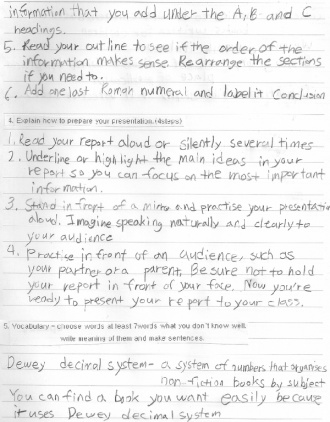 information that you add under the A, B and C
headings.
5. Read your outline to see if the order of the
information makes sense. Rearrange the sections
if you need to.
6. Add one last Roman numeral and label it Conclusion
4. Explain how to prepare your presentation.(4steps)
1. Read your report aloud or silently several times
2. Underline or highlight the main ideas in your
report so you can focus on the most important
information.
3. Stand in front of a mirror and practise your presentation
aloud. Imagine speaking naturally and clearly to
your audience
4. Practise in front of an audience, such as
your partner or a parent. Be sure not to hold
your report in front of your face. Now you're
ready to present your report to your class.
5. Vocabulary – choose words at least 7words what you don't know well.
write meaning of them and make sentences.
Dewey decimal system- a system of numbers that organises
non-fiction books by subject
You can find a book you want easily because
it uses Dewey decimal system